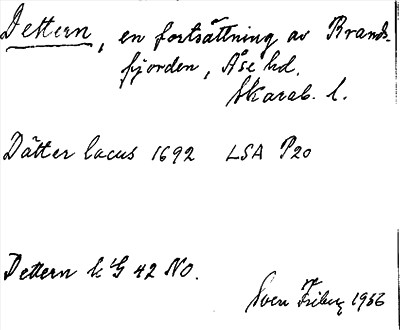 Dettern, en fortsättning av Brands-
fjorden, Åse hd.
Skarab. l.
Dätter lacus 1692 LSA P20
Dettern k G 42 NO.
Sven Friberg 1966